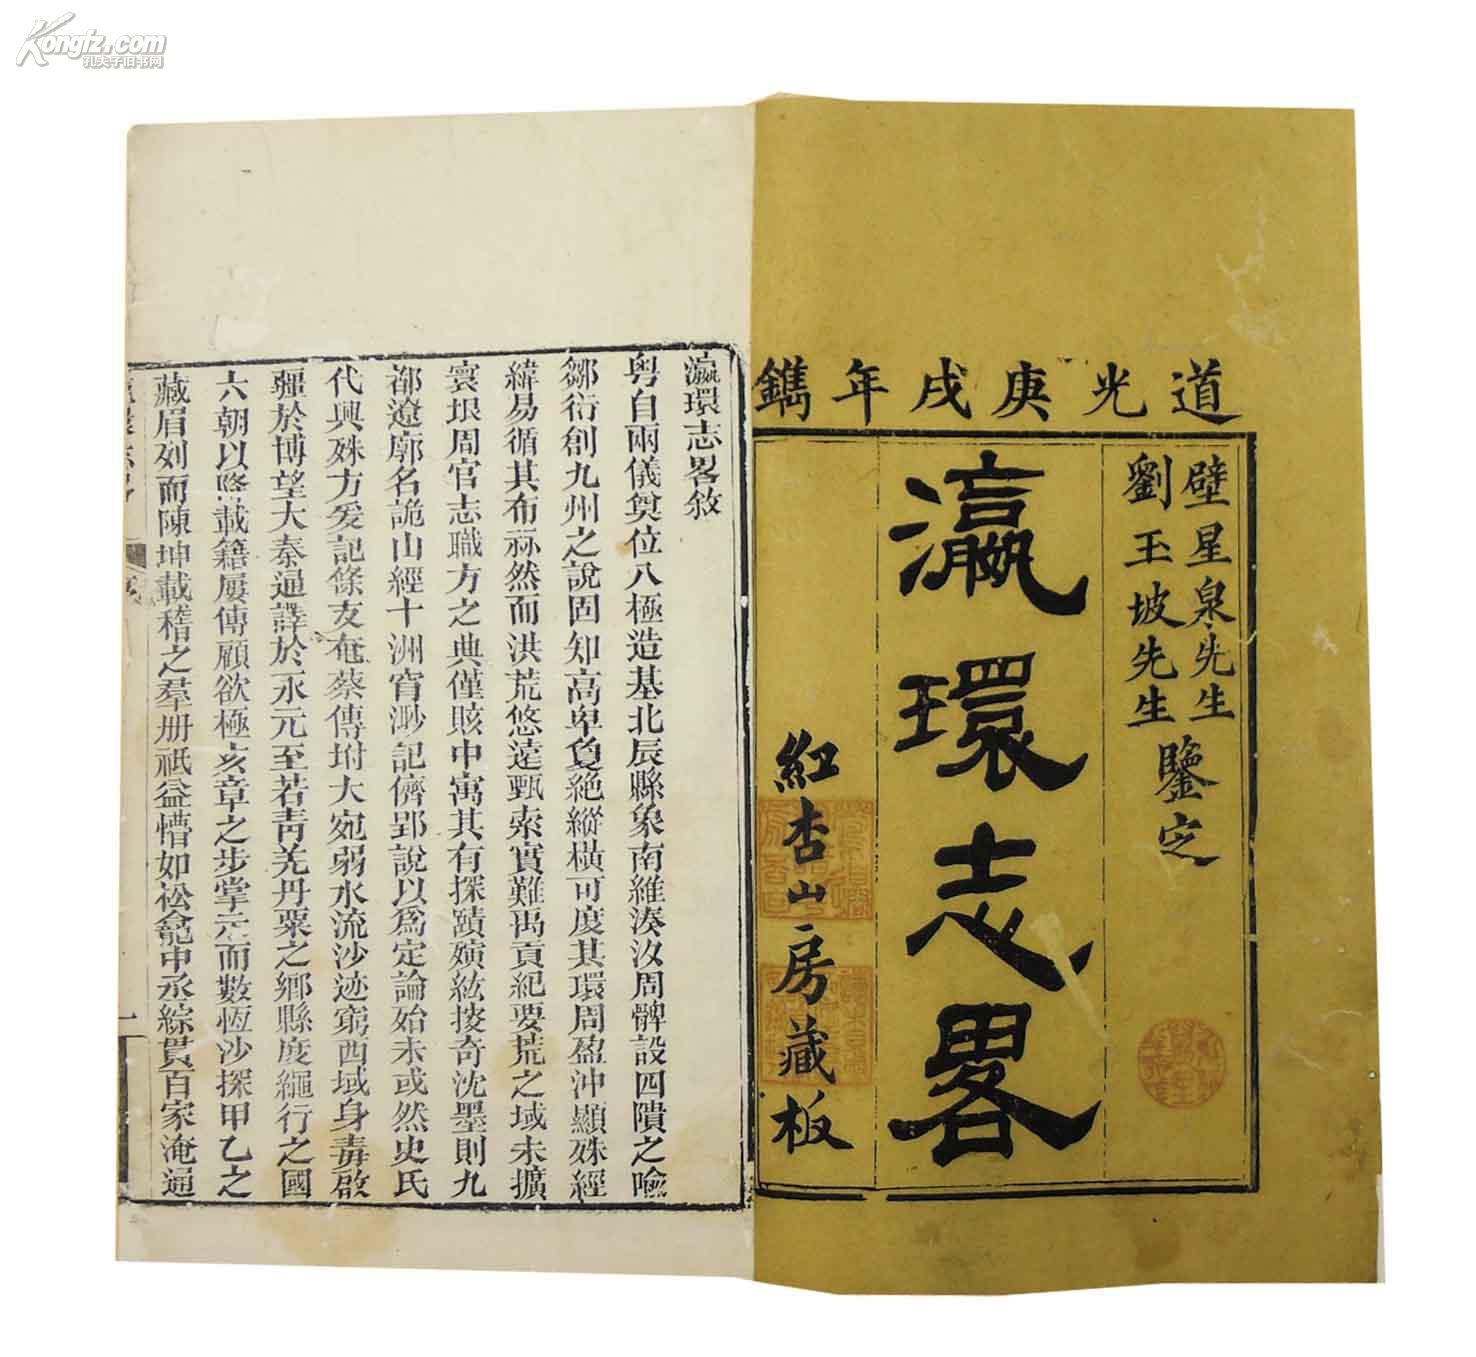 Kongfz.com
孔夫子旧书网
道光庚戌年鐫
壁星泉先生
劉玉坡先生
鑒定
瀛環志畧
紅杏山房藏板
瀛環志畧敘
粤自兩儀奠位八極造基北辰縣象南維湊汝周髀設四隤之喻
鄒衍創九州之說固知高卑敻絶縱橫可度其環周盈沖顯殊經
緯易循其布祘然而洪荒悠遠甄索實難禹貢紀要荒之域未擴
寰垠周官志職方之典僅賅中寓其有探賾殥紘捘奇沈墨則九
都遼廓名詭山經十洲宵渺記儕郢說以爲定論始未或然史氏
代興殊方爰記條支奄蔡傳坿大宛弱水流沙迹窮西域身毒啟
疆於博望大秦通譯於永元至若青羌丹粟之鄉縣度繩行之國
六朝以降載籍屢傳顧欲極亥章之步掌示而數恆沙探甲乙之
藏眉列而陳坤載稽之羣册祇益懵如松龕中丞綜貫百家淹通